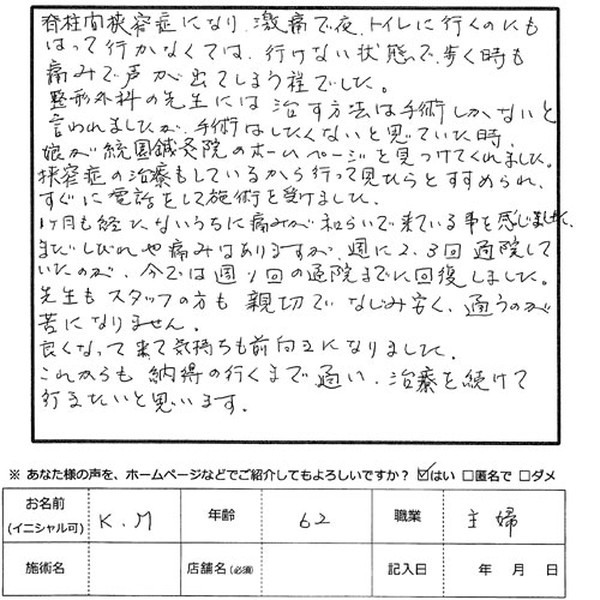 脊柱間狭窄症になり、激痛で夜、トイレに行くのにも
はって行かなくては、行けない状態で、歩く時も
痛みで声が出てしまう程でした。
整形外科の先生には治す方法は手術しかないと
言われましたが、手術はしたくないと思っていた時、
娘が統園鍼灸院のホームページを見つけてくれました。
狭窄症の治療もしているから行って見たらとすすめられ、
すぐに電話をして施術を受けました。
1ヶ月も経たないうちに痛みが和らいで来ている事を感じました、
まだしびれや痛みはありますが、週に2、3回通院して
いたのが、今では週1回の通院までに回復しました。
先生もスタッフの方も親切でなじみ安く、通うのが
苦になりません。
良くなって来て気持ちも前向きになりました。
これからも納得の行くまで通い、治療を続けて
行きたいと思います。
※ あなた様の声を、ホームページなどでご紹介してもよろしいですか? ☑はい □匿名で □ダメ
お名前 (イニシャル可) K.M 年齢 62 職業 主婦
施術名 店舗名(必須) 記入日 年 月 日